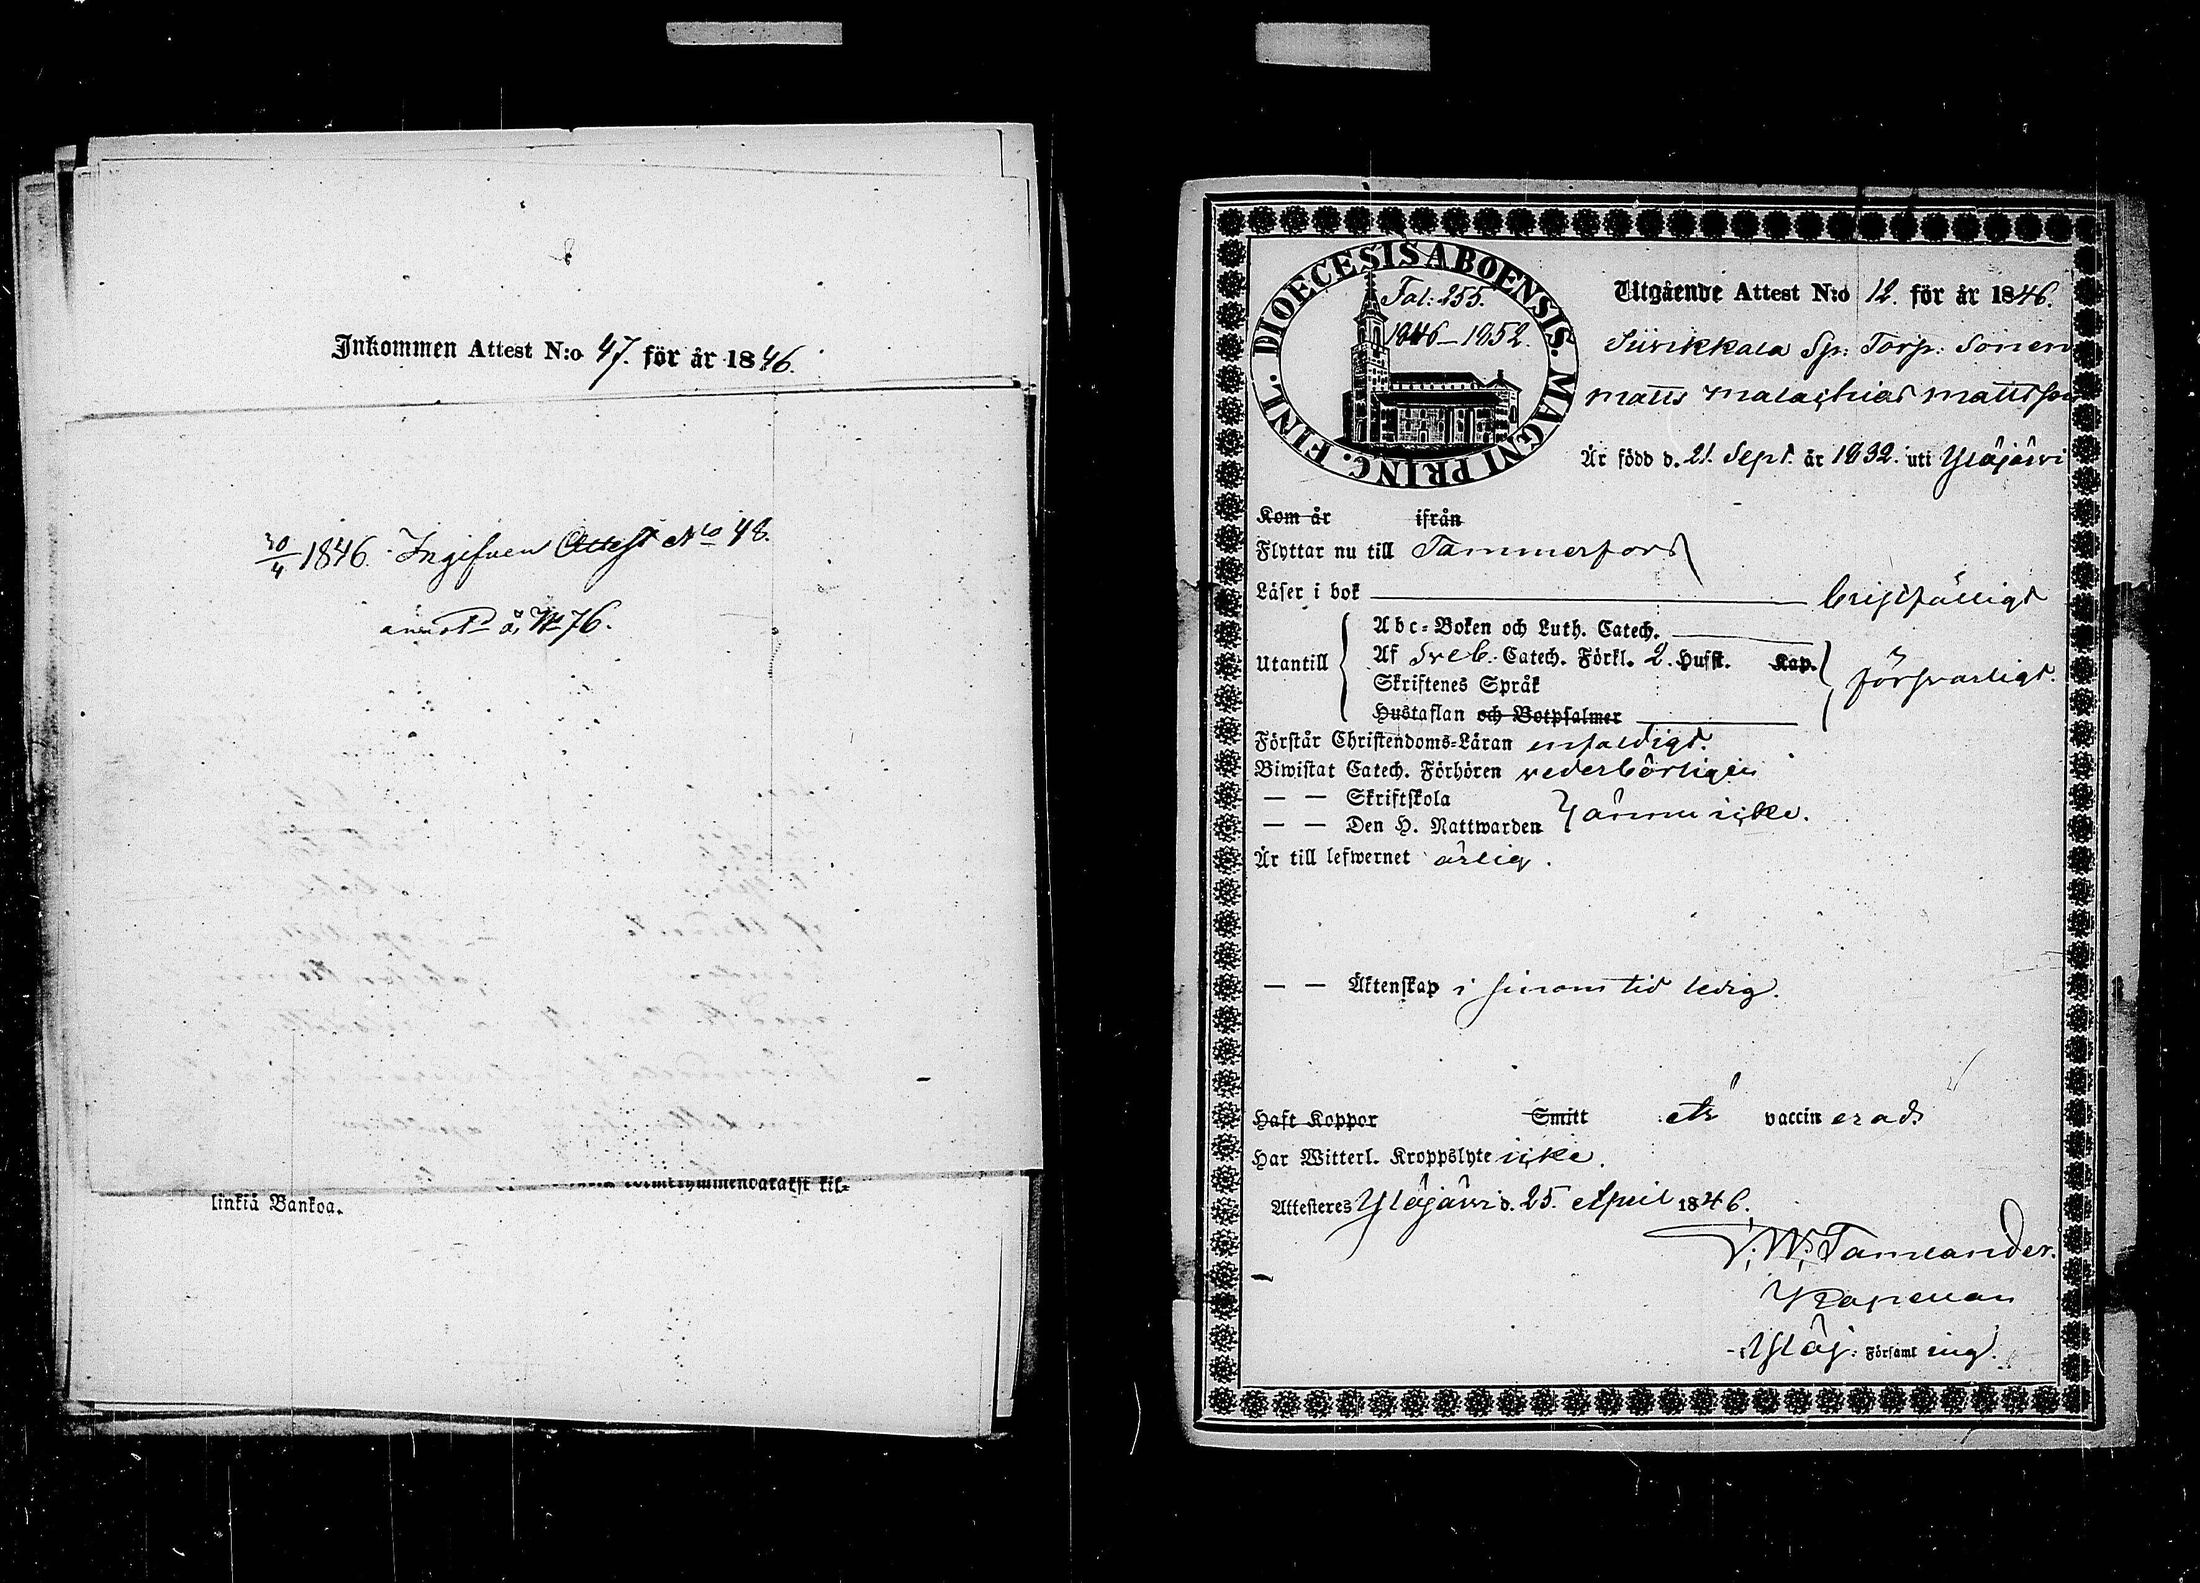 Inkommen Attest N:o 47. för år 1846.
30/4 1846. Ingifven Attest No 48.
annot. å, No 76.
linkiä Bankoa.
DIOECESIS ABOENSIS. MAGNI PRINC. FINL.
Fol: 255.
1846–1852.
Utgående Attest N:o 12. för år 1846.
Siivikkala Sp: Torp: Sonen
Matts Malachias Mattsson
Är född d. 21. Sept. år 1832. uti Ylöjärvi
Kom år ifrån
Flyttar nu till Tammerfors
Läser i bok bristfälligt
Utantill
Abc-Boken och Luth. Catech.
Af Sveb. Catech. Förkl. 2. Husst. Kap.
Skriftenes Språk
försvarligt.
Hustaflan och Botpsalmer
Förstår Christendoms-Läran enfaldigt.
Biwistat Catech. Förhören vederbörligen
— — Skriftskola
— — Den H. Nattwarden ännu icke.
Är till lefwernet ärlig.
— — Äktenskap i sinom tid ledig.
Haft Koppor Smitt vaccinerad.
Har Witterl. Kroppslyte icke.
Attesteres Ylöjärvi d. 25. April 1846.
Tamlander.
Kapellan
i Ylöj. Församling.